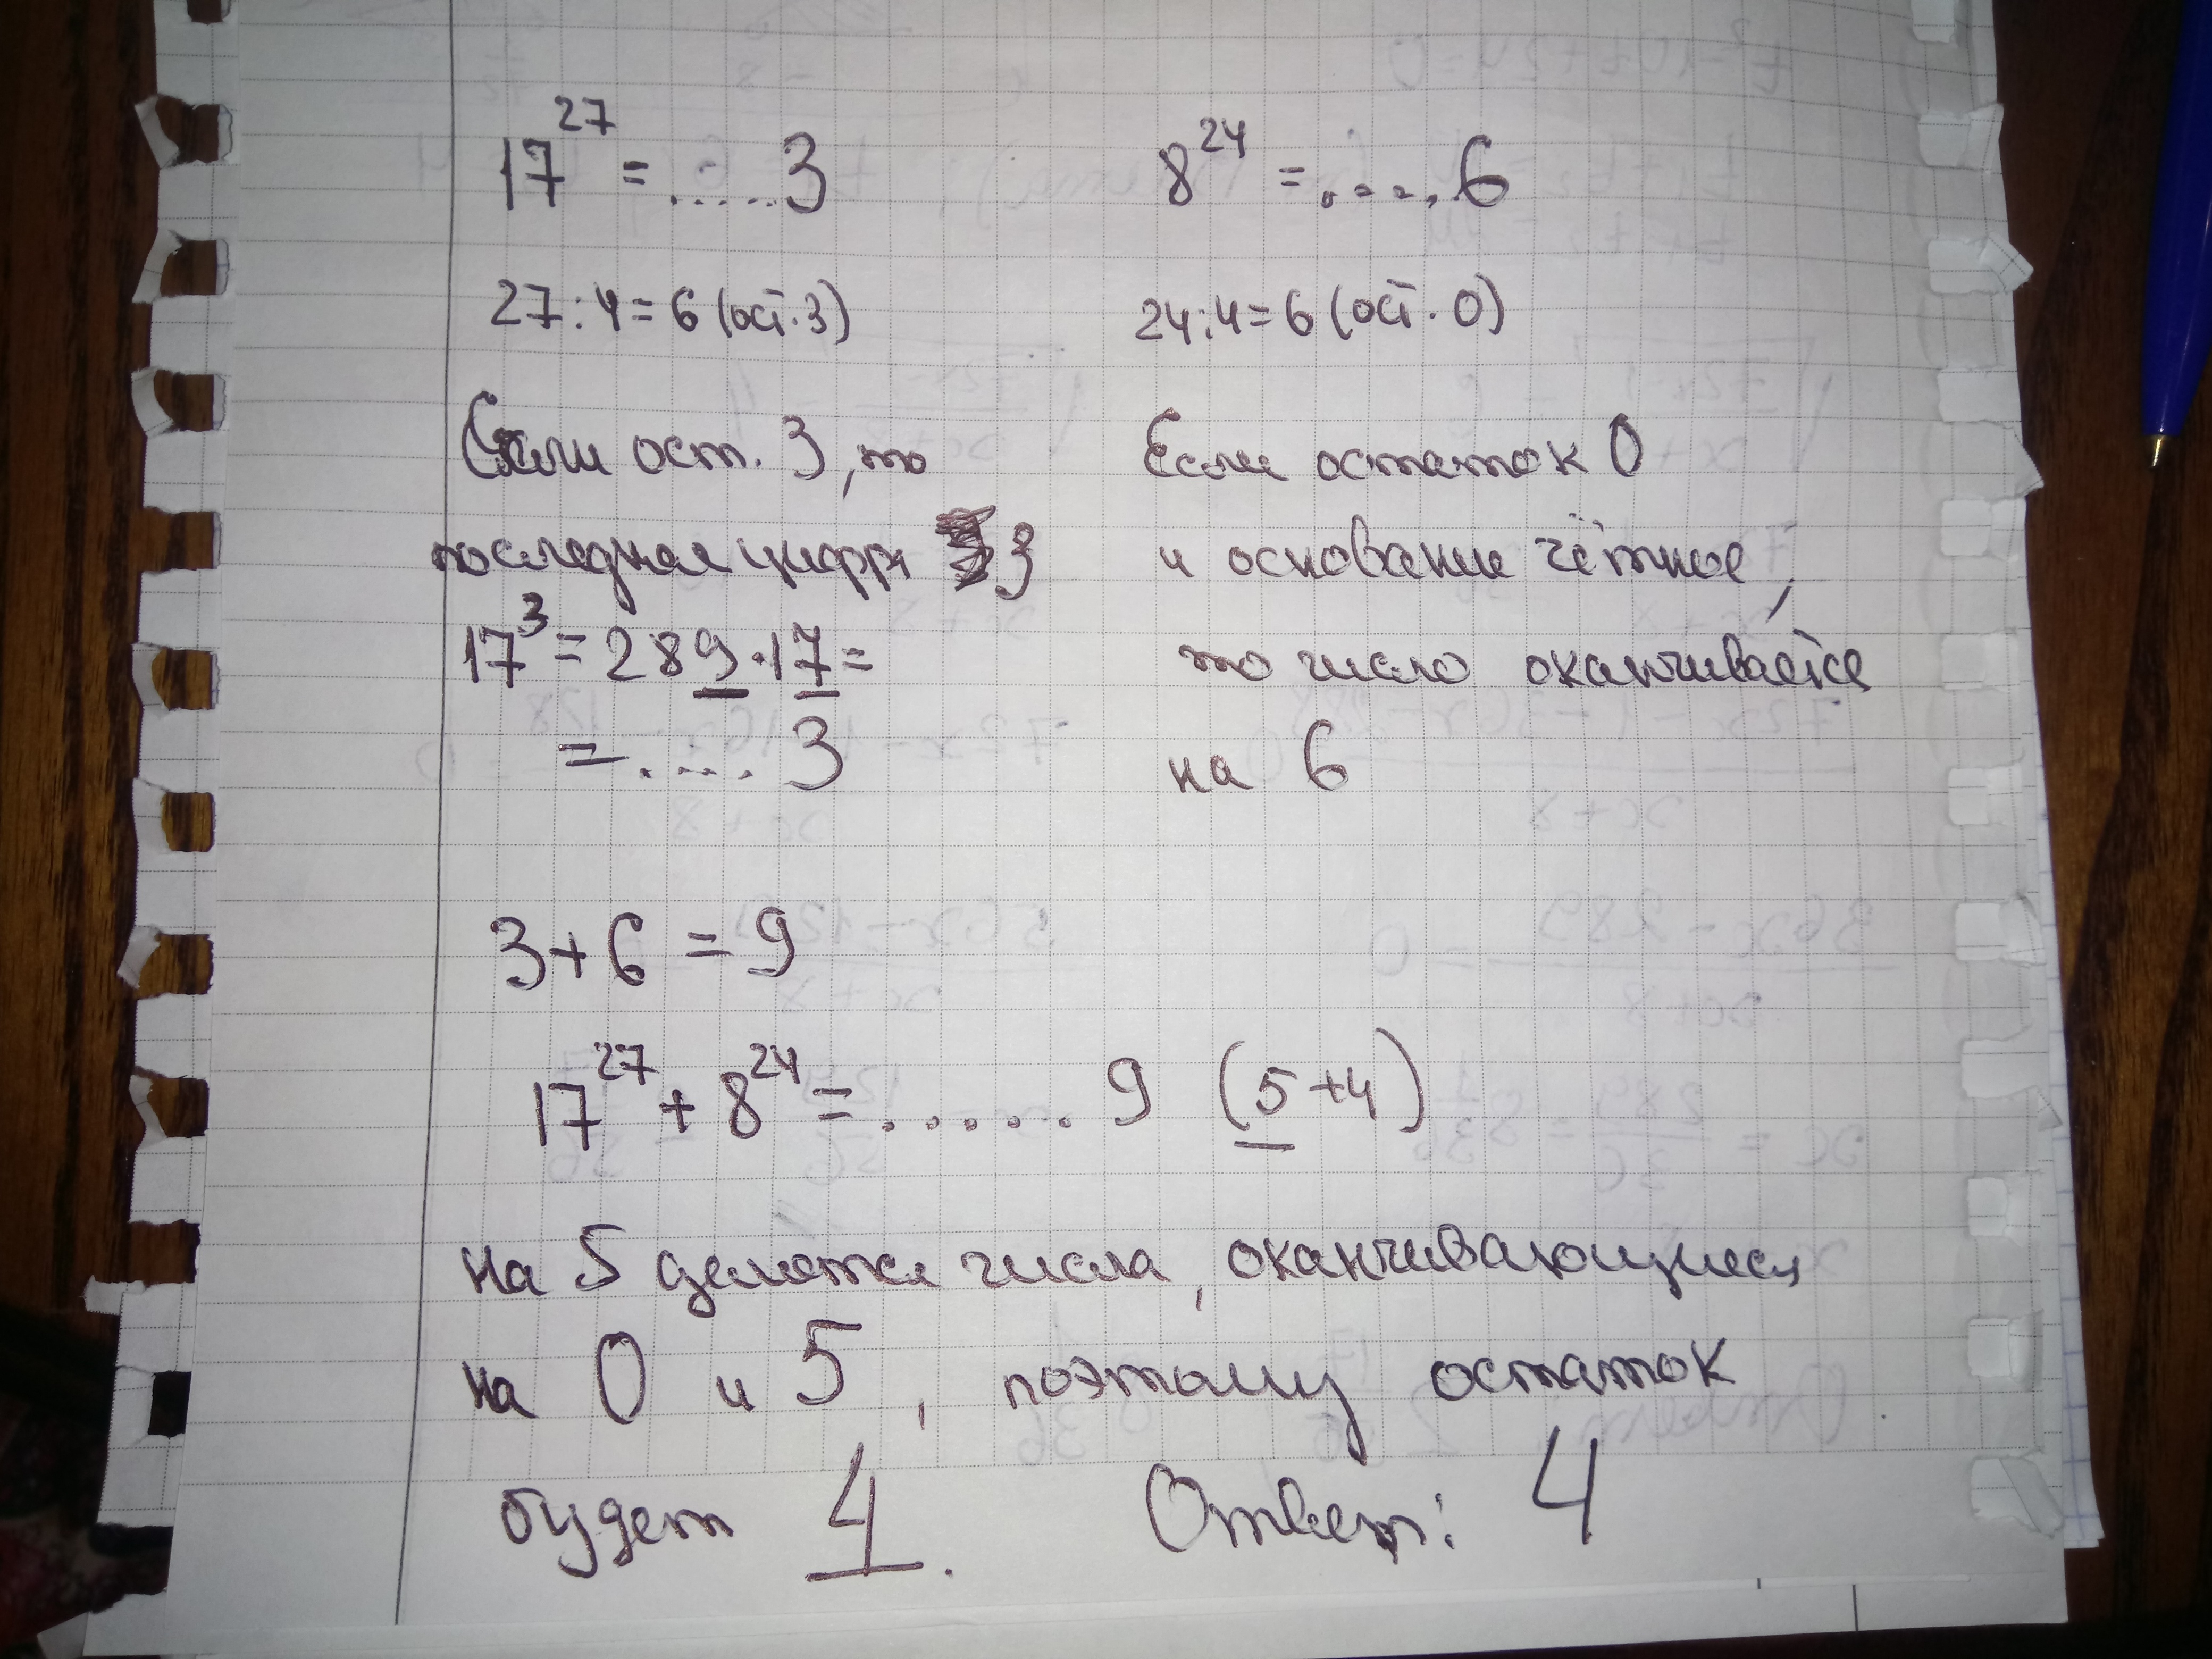 17^27 = .....3 8^24 = .....6
27:4=6 (ост.3) 24:4=6 (ост. 0)
Если ост. 3, то Если остаток 0
последняя цифра 3 и основание чётное,
17^3 = 289·17= то число оканчивается
= ..... 3 на 6
3+6 = 9
17^27 + 8^24 = ...... 9 (5+4)
на 5 делятся числа, оканчивающиеся
на 0 и 5, поэтому остаток
будет 4. Ответ: 4